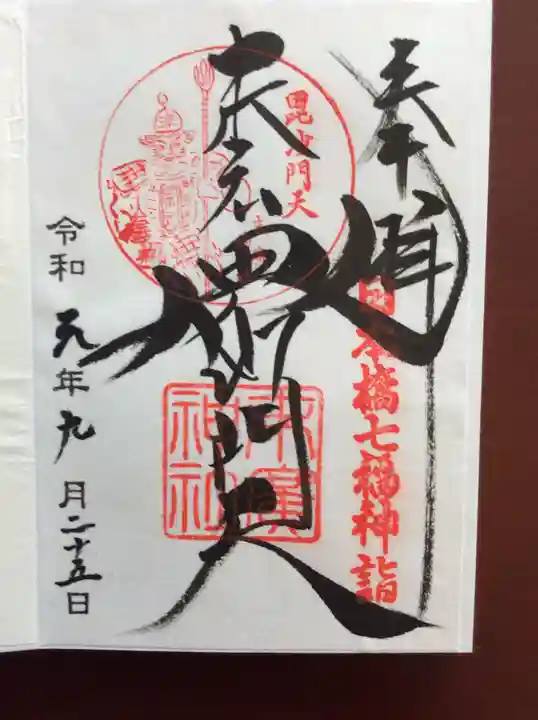 奉拝
日本橋七福神詣
末広毘沙門天
毘沙門天
末廣
神社
令和元年九月二十五日